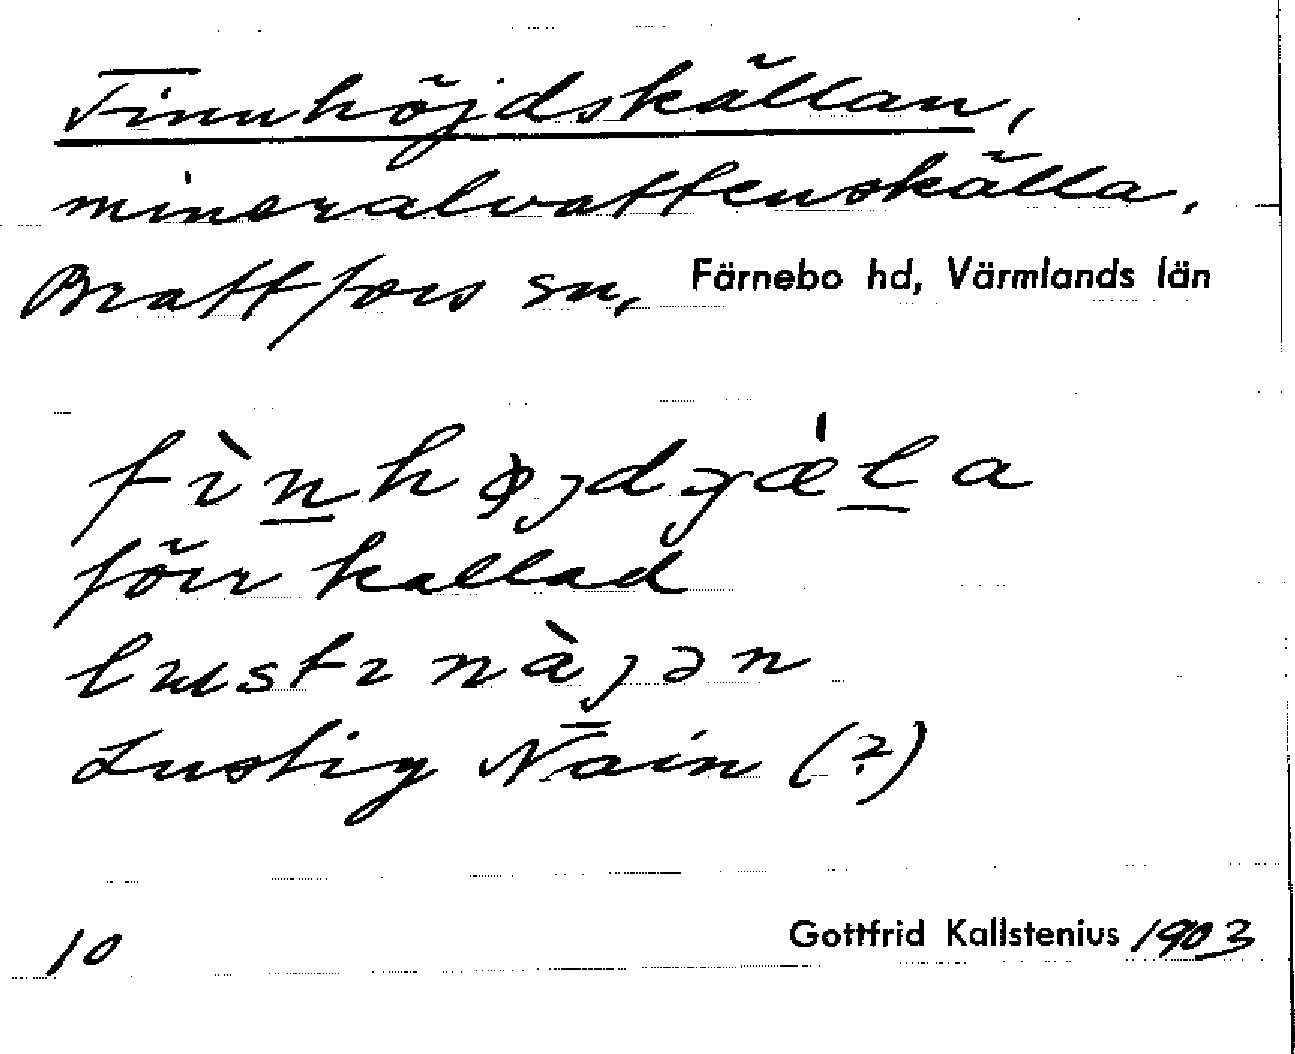 Finnhöjdskällan,
mineralvattenskälla.
Brattfors sn, Färnebo hd, Värmlands län
fìnhøjdɟæ̀la
förr kallad
lusti nàjən
Lustig Nain (?)
10 Gottfrid Kallstenius 1903